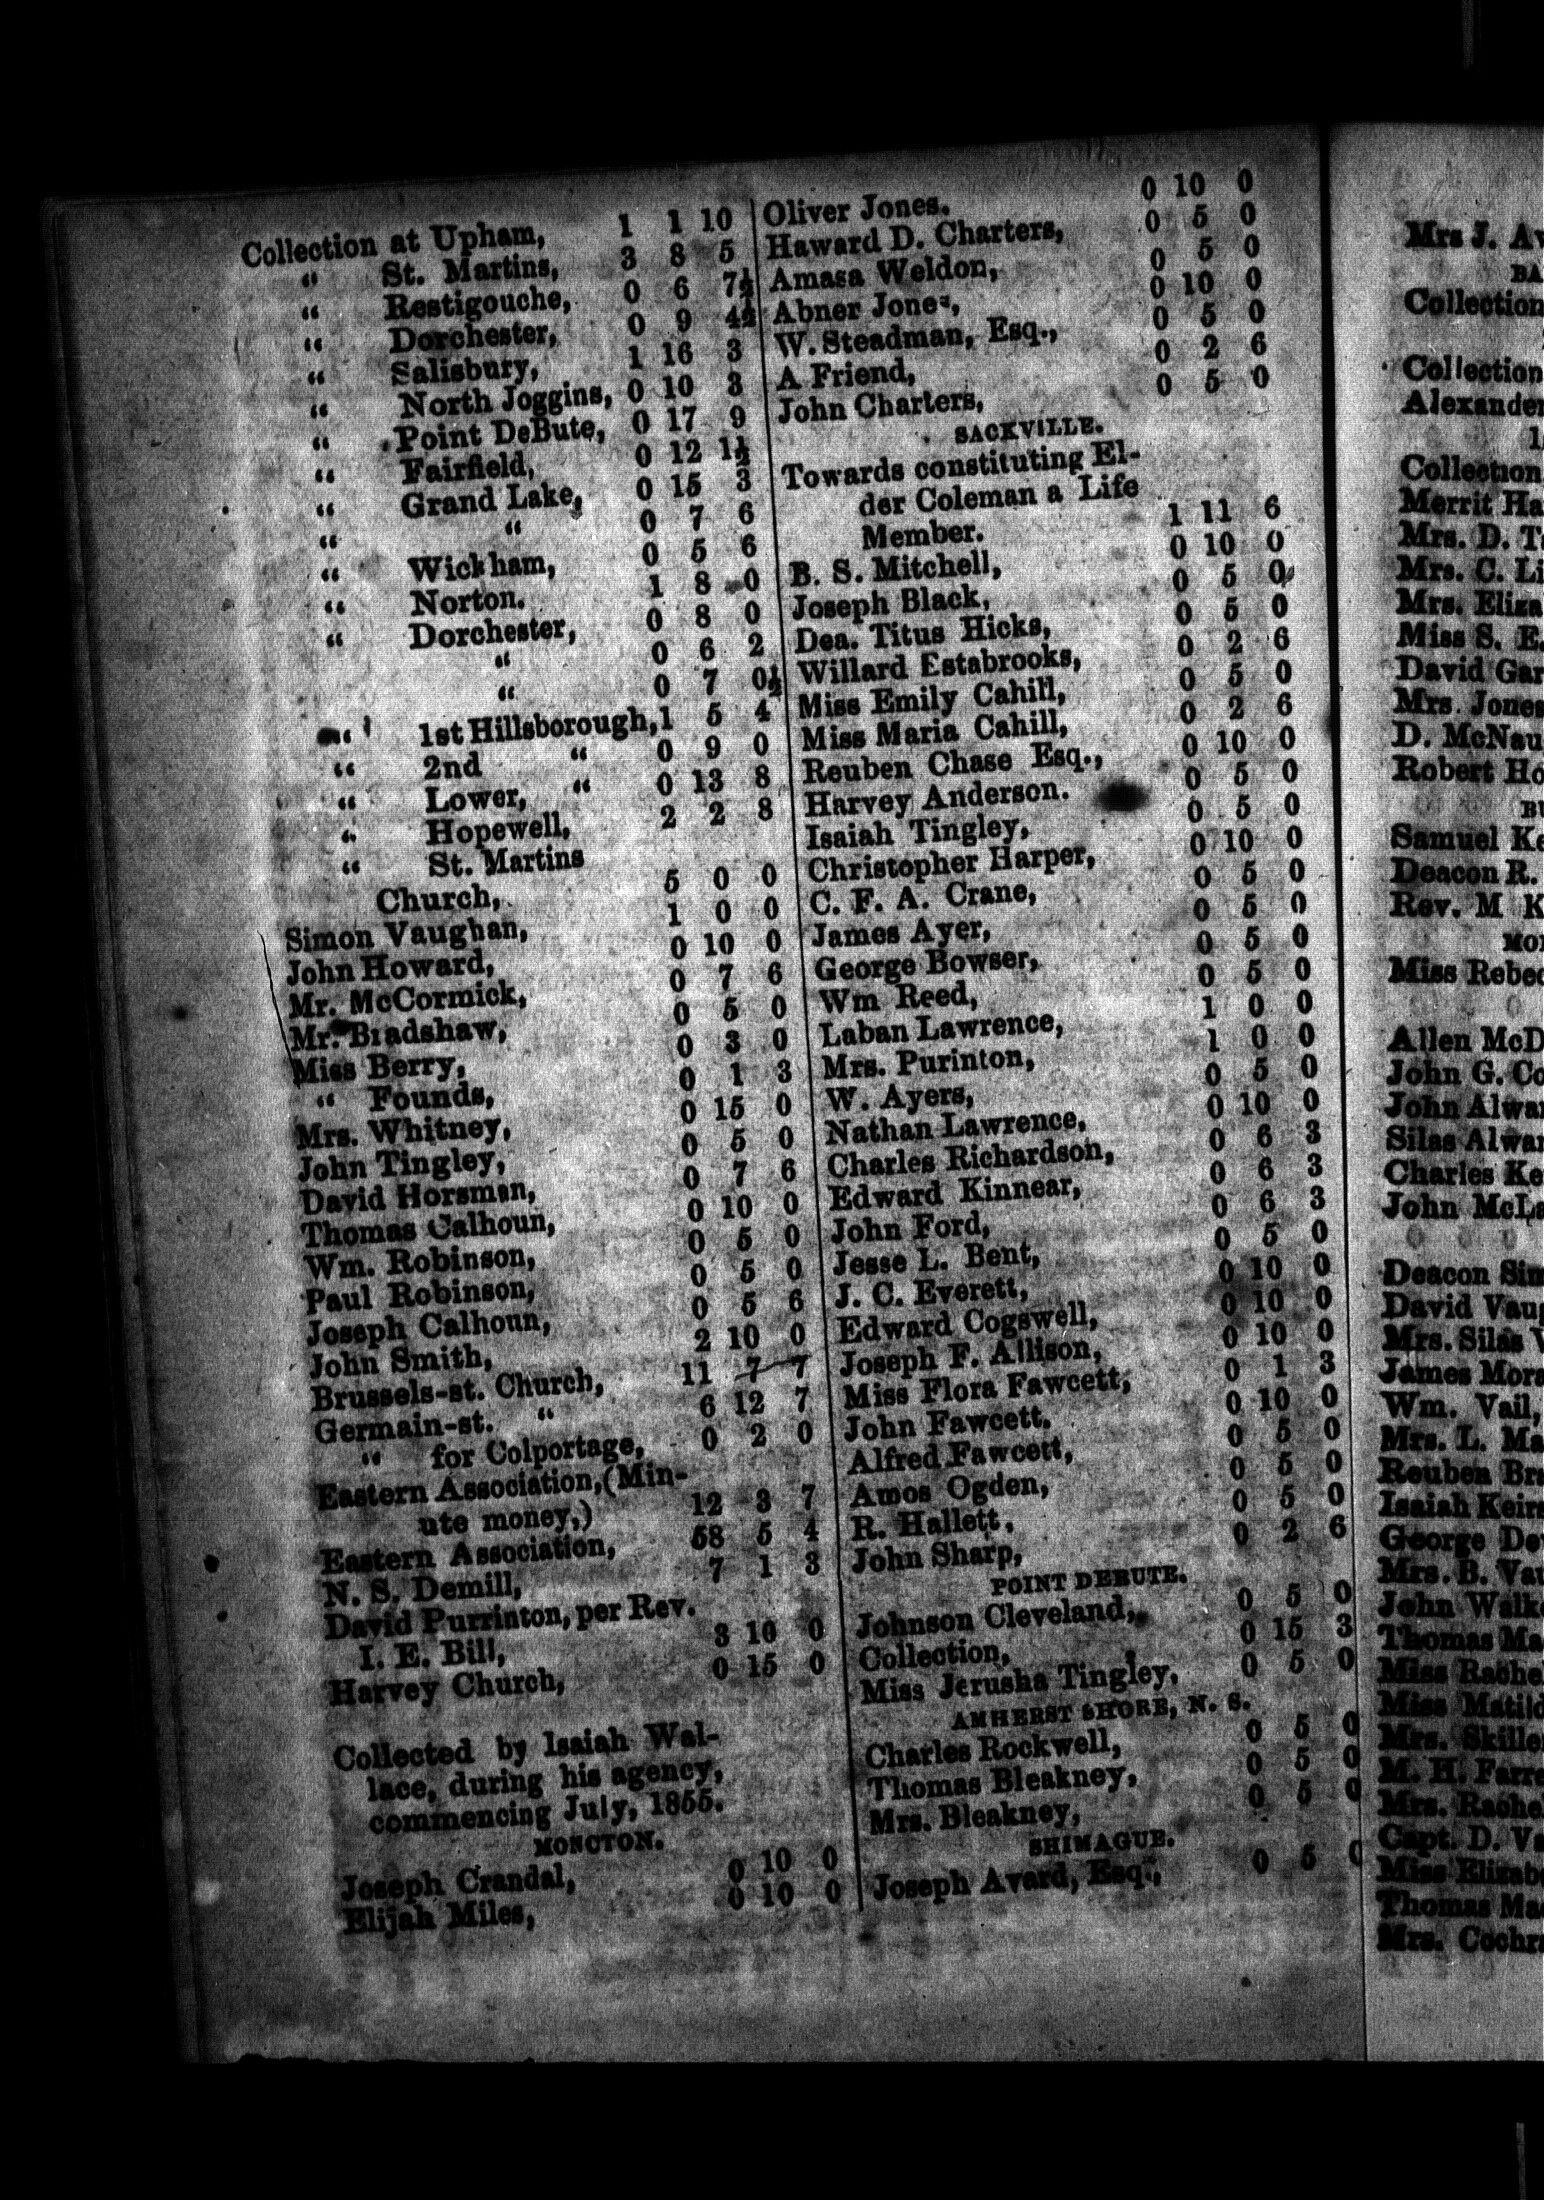 Collection at Upham, 1 1 10
" St. Martins, 3 8 5
" Restigouche, 0 6 7½
" Dorchester, 0 9 4½
" Salisbury, 1 16 3
" North Joggins, 0 10 3
" Point DeBute, 0 17 9
" Fairfield, 0 12 1½
" Grand Lake, 0 15 3
" " 0 7 6
" Wickham, 0 5 6
" Norton. 1 8 0
" Dorchester, 0 8 0
" 0 6 2
" 0 7 0½
" 1st Hillsborough, 1 5 4
" 2nd " 0 9 0
" Lower, " 0 13 8
" Hopewell, 2 2 8
" St. Martins
Church, 5 0 0
Simon Vaughan, 1 0 0
John Howard, 0 10 0
Mr. McCormick, 0 7 6
Mr. Bradshaw, 0 5 0
Miss Berry, 0 3 0
" Founds, 0 1 3
Mrs. Whitney, 0 15 0
John Tingley, 0 5 0
David Horsman, 0 7 6
Thomas Calhoun, 0 10 0
Wm. Robinson, 0 5 0
Paul Robinson, 0 5 0
Joseph Calhoun, 0 5 6
John Smith, 2 10 0
Brussels-st. Church, 11 7 7
Germain-st. " 6 12 7
" for Colportage, 0 2 0
Eastern Association, (Min-
ute money,) 12 3 7
Eastern Association, 58 5 4
N. S. Demill, 7 1 3
David Purrinton, per Rev.
I. E. Bill, 3 10 0
Harvey Church, 0 15 0
Collected by Isaiah Wal-
lace, during his agency,
commencing July, 1855.
MONCTON.
Joseph Crandal, 0 10 0
Elijah Miles, 0 10 0
Oliver Jones. 0 10 0
Haward D. Charters, 0 5 0
Amasa Weldon, 0 5 0
Abner Jones, 0 10 0
W. Steadman, Esq., 0 5 0
A Friend, 0 2 6
John Charters, 0 5 0
SACKVILLE.
Towards constituting El-
der Coleman a Life
Member. 1 11 6
B. S. Mitchell, 0 10 0
Joseph Black, 0 5 0
Dea. Titus Hicks, 0 5 0
Willard Estabrooks, 0 2 6
Miss Emily Cahill, 0 5 0
Miss Maria Cahill, 0 2 6
Reuben Chase Esq., 0 10 0
Harvey Anderson. 0 5 0
Isaiah Tingley, 0 5 0
Christopher Harper, 0 10 0
C. F. A. Crane, 0 5 0
James Ayer, 0 5 0
George Bowser, 0 5 0
Wm Reed, 0 5 0
Laban Lawrence, 1 0 0
Mrs. Purinton, 1 0 0
W. Ayers, 0 5 0
Nathan Lawrence, 0 10 0
Charles Richardson, 0 6 3
Edward Kinnear, 0 6 3
John Ford, 0 6 3
Jesse L. Bent, 0 5 0
J. C. Everett, 0 10 0
Edward Cogswell, 0 10 0
Joseph F. Allison, 0 10 0
Miss Flora Fawcett, 0 1 3
John Fawcett. 0 10 0
Alfred Fawcett, 0 5 0
Amos Ogden, 0 5 0
R. Hallett, 0 5 0
John Sharp, 0 2 6
POINT DEBUTE.
Johnson Cleveland, 0 5 0
Collection, 0 15 3
Miss Jerusha Tingley, 0 5 0
AMHERST SHORE, N. S.
Charles Rockwell, 0 5 0
Thomas Bleakney, 0 5 0
Mrs. Bleakney, 0 5 0
SHIMAGUE.
Joseph Avard, Esq., 0 5 0
Mrs J.
Collection
Collection
Collection
Merrit
Mrs. D.
Mrs. C.
Mrs.
Miss S. E.
David
Mrs. Jones
D.
Robert
Samuel
Deacon R.
Rev. M
Miss
Allen
John G.
John
Silas
Charles
John
Deacon
David
Mrs. Silas
James
Wm. Vail,
Mrs. L.
Reuben
Isaiah
George
Mrs. B.
John
Thomas
Miss
Miss
Mrs.
M. H.
Mrs.
Capt. D.
Miss
Thomas
Mrs.